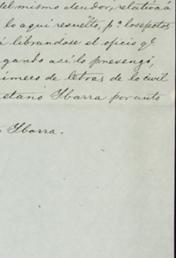 del mismo deudor, relativa á
lo aqui resuelto, pª los efectos
á librandose el oficio qᵉ
gando así lo provengo,
número de letras de lo civil
etano Ybarra por auto
Ybarra.